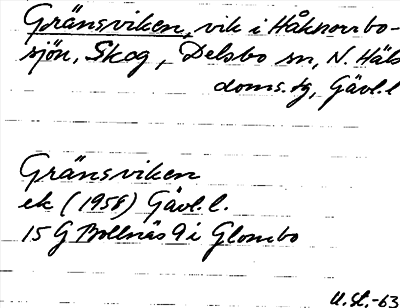 Gränsviken, vik i Håknorrbo-
sjön, Skog, Delsbo sn, N. Häls
doms.tg, Gävl.l
Gränsviken
ek (1958) Gävl.l.
15 G Bollnäs 9 i Glombo
U.St.-63